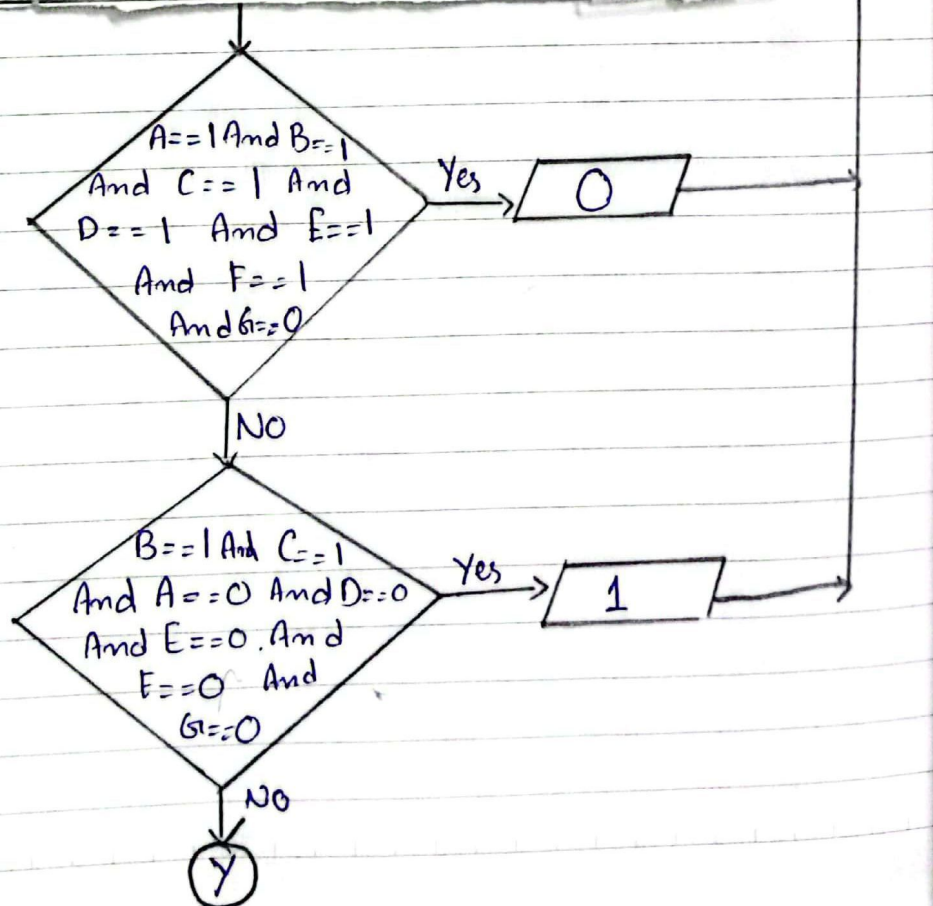 A==1 And B==1
And C==1 And
D==1 And E==1
And F==1
And G==0
Yes
0
NO
B==1 And C==1
And A==0 And D==0
And E==0. And
E==0 And
G==0
Yes
1
NO
Y